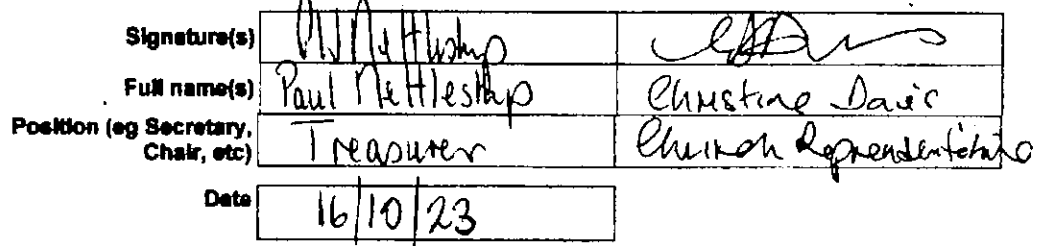 Signature(s)
Full name(s) Paul Nettleship Christine Davis
Position (eg Secretary,
Chair, etc) Treasurer Church Representative
Date 16/10/23